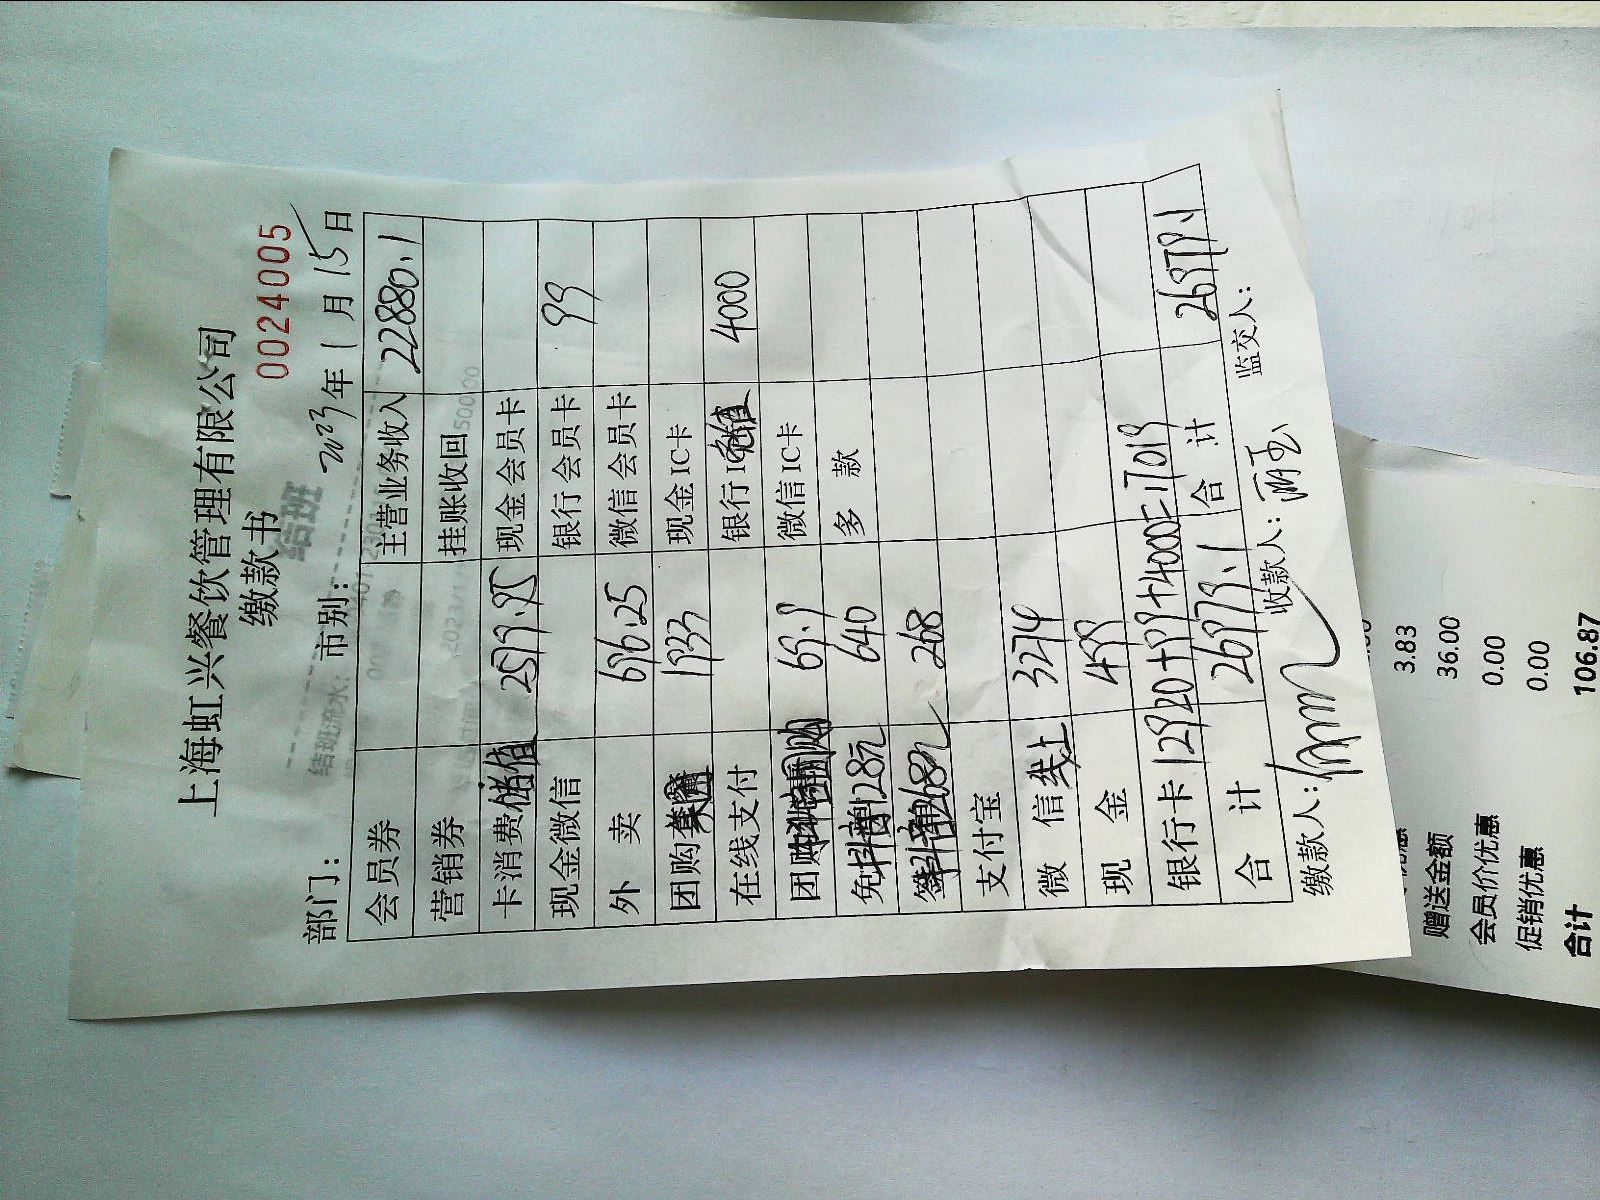 上海虹兴餐饮管理有限公司
缴款书
0024005
部门： 市别： 2023年1月15日
会员券 主营业务收入 22880.1
营销券 挂账收回
卡消费储值 2579.95 现金会员卡
现金微信 银行会员卡 99
外卖 696.25 微信会员卡
团购 1933 现金IC卡
在线支付 银行IC 储值 4000
团购 69.9 微信IC卡
免 128元 640 多款
268元 268
支付宝
微信线上 3274
现金 499
银行卡 12920+99+4000=17019
合计 26979.1 合计 26979.1
缴款人： 收款人： 监交人：
结班
结班流水：
3.83
赠送金额 36.00
会员价优惠 0.00
促销优惠 0.00
合计 106.87